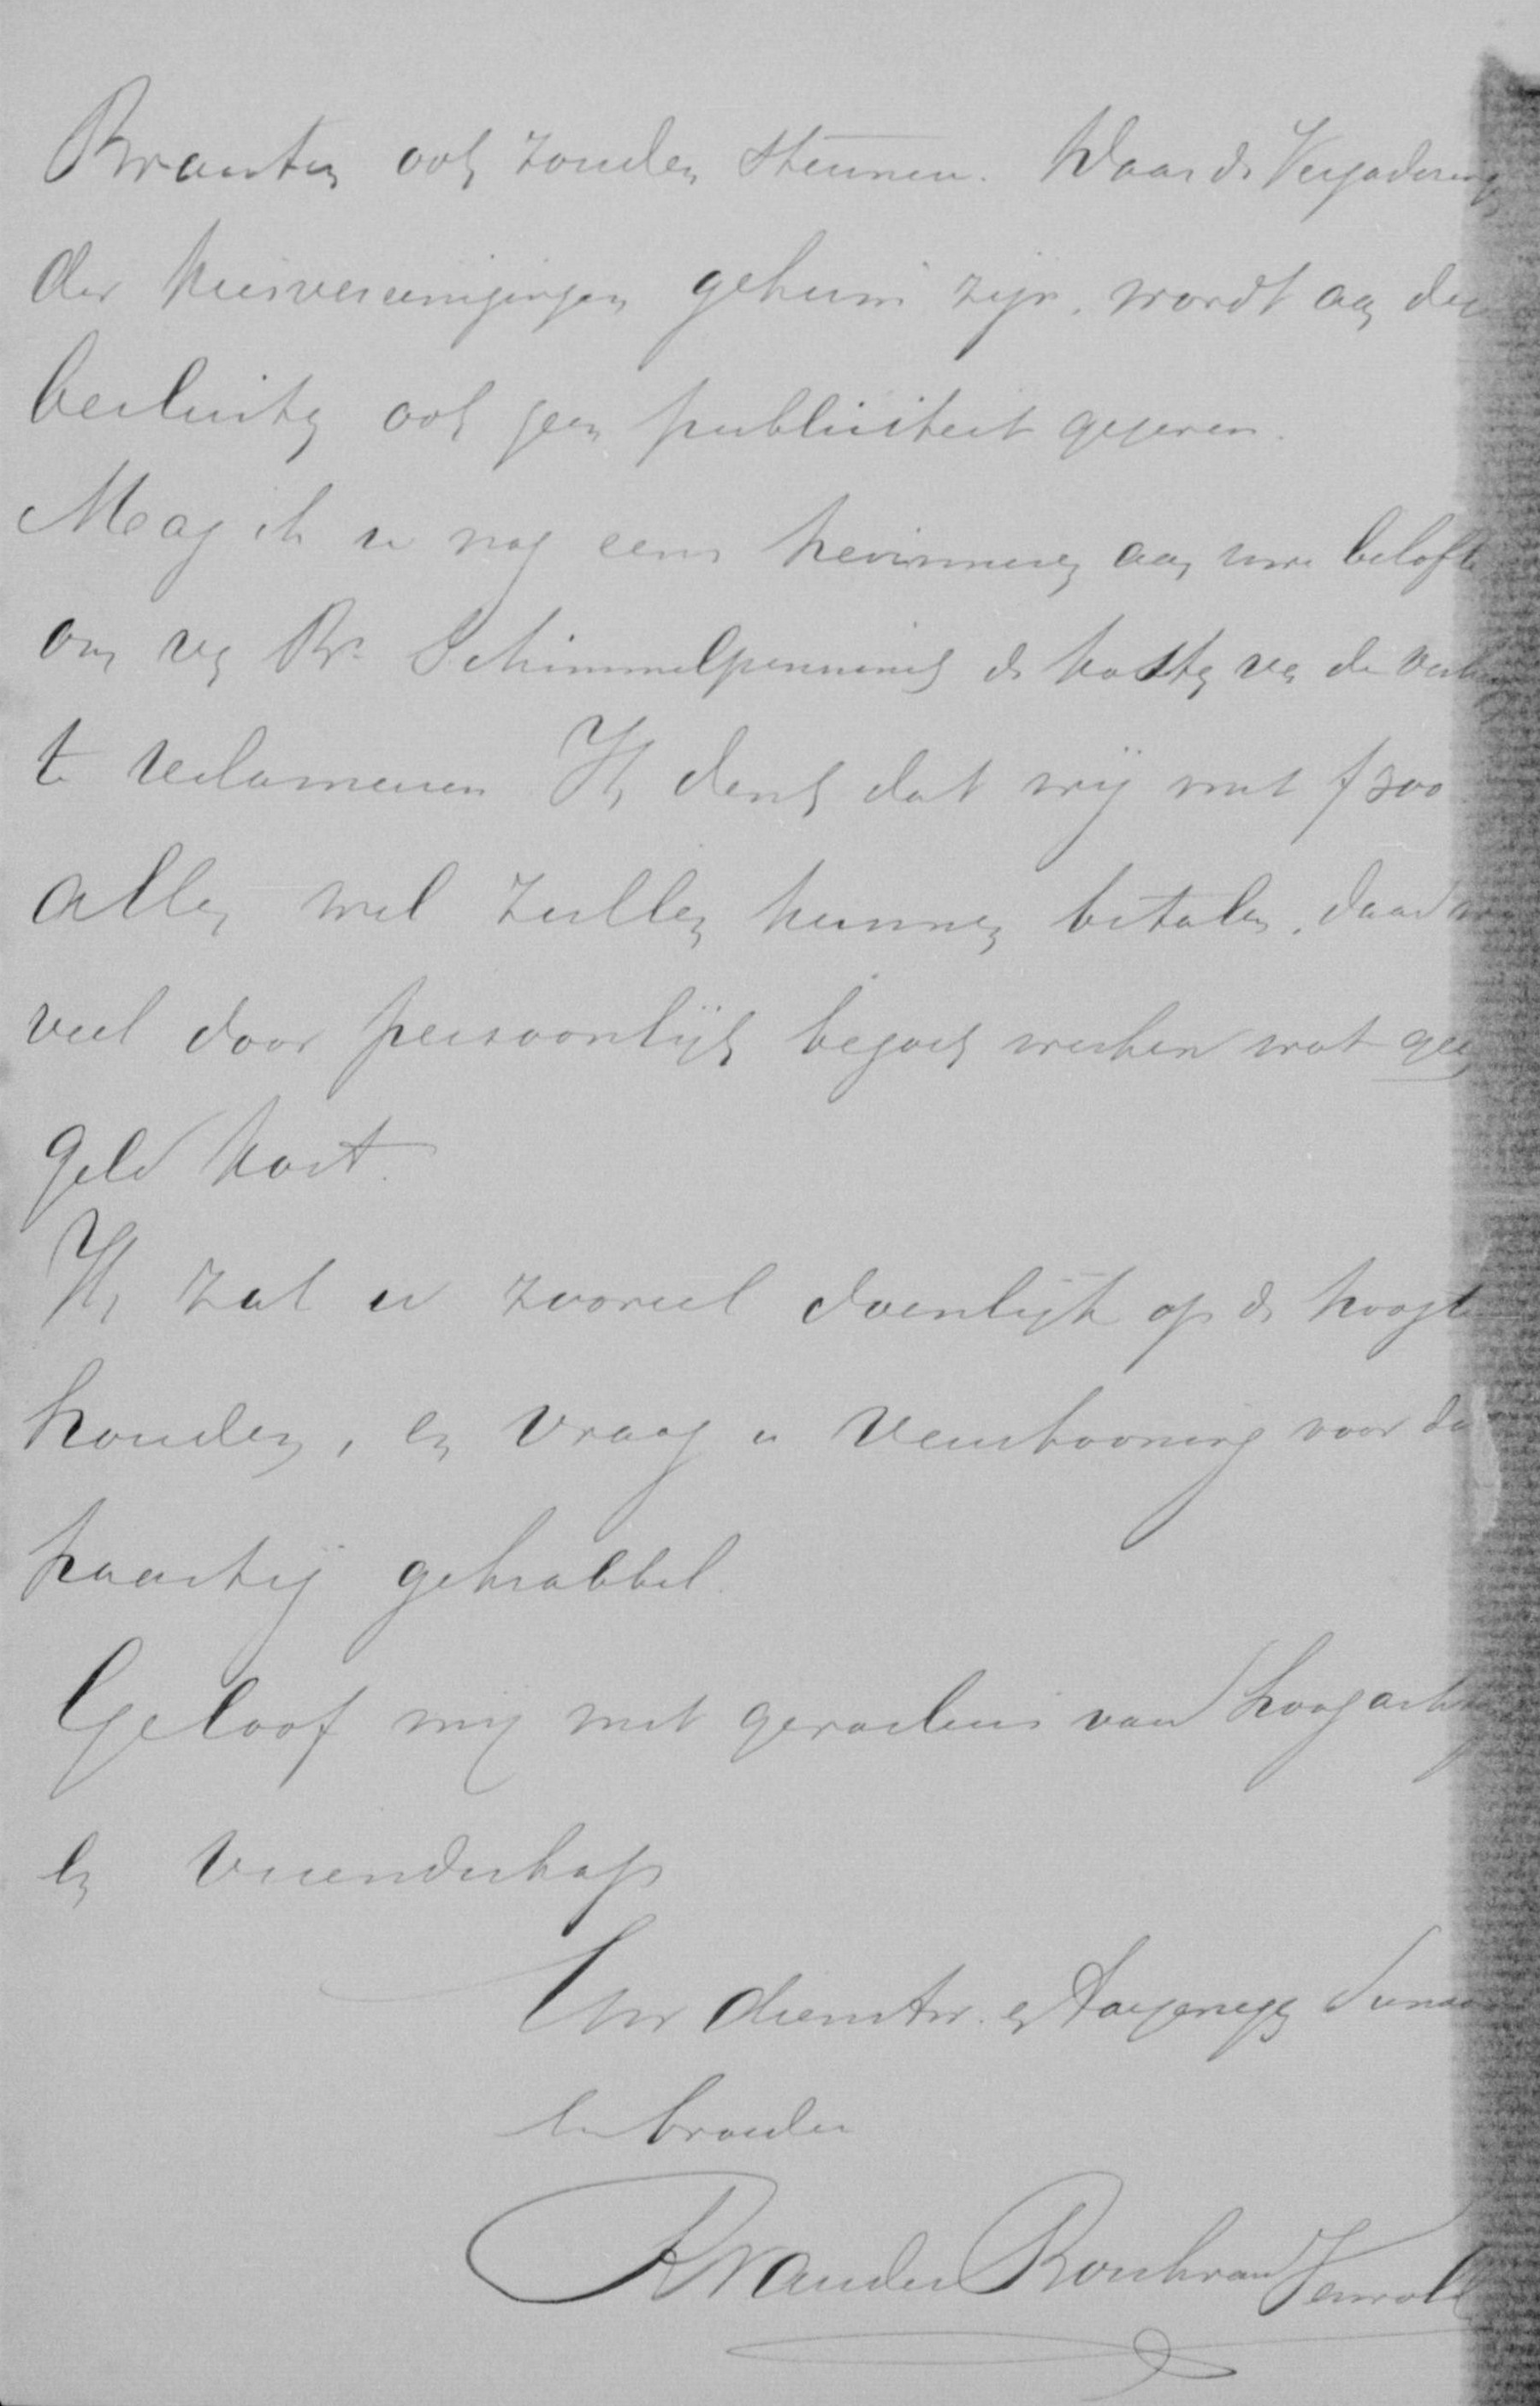 Branten ook zouden steunen. Waar de Vergadering
der kiesvereenigingen geheim zijn, wordt aan de
besluiten ook geen publiciteit gegeven.
Mag ik u nog eens herinneren aan uwe belofte
om van Br. Schimmelpenninck de kosten van de
te reclameeren Ik denk dat wij met f 300
alles wel zullen kunnen betalen, daar
veel door persoonlijk bezoek werken wat geen
geld kost.
Ik zal u zooveel doenlijk op de hoogte
houden, en vraag u verschooning voor dit
haastig gekrabbel.
Geloof mij met gevoelens van hoogacht
en vriendschap
Uw dienstw. en toegenegen dienaar
en broeder
van